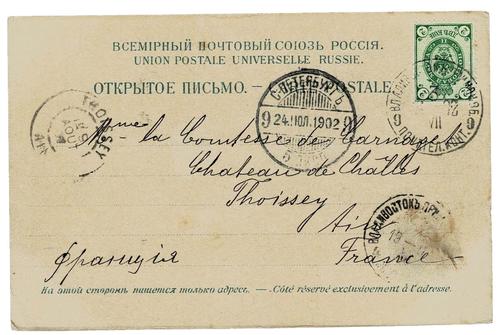 ВСЕМІРНЫЙ ПОЧТОВЫЙ СОЮЗЪ РОССІЯ.
UNION POSTALE UNIVERSELLE RUSSIE.
ОТКРЫТОЕ ПИСЬМО. — POSTALE.
С.ПЕТЕРБУРГЪ
9 24.ІЮЛ.1902 9
THOISSEY
AIN
9 VII 9
ВЛАДИВОСТОКЪ
19
Mme La Comtesse de Garnage
Chateau de Challes
Thoissey
Ain
France
Франція
На этой сторонѣ пишется только адресъ. — Côté réservé exclusivement à l'adresse.